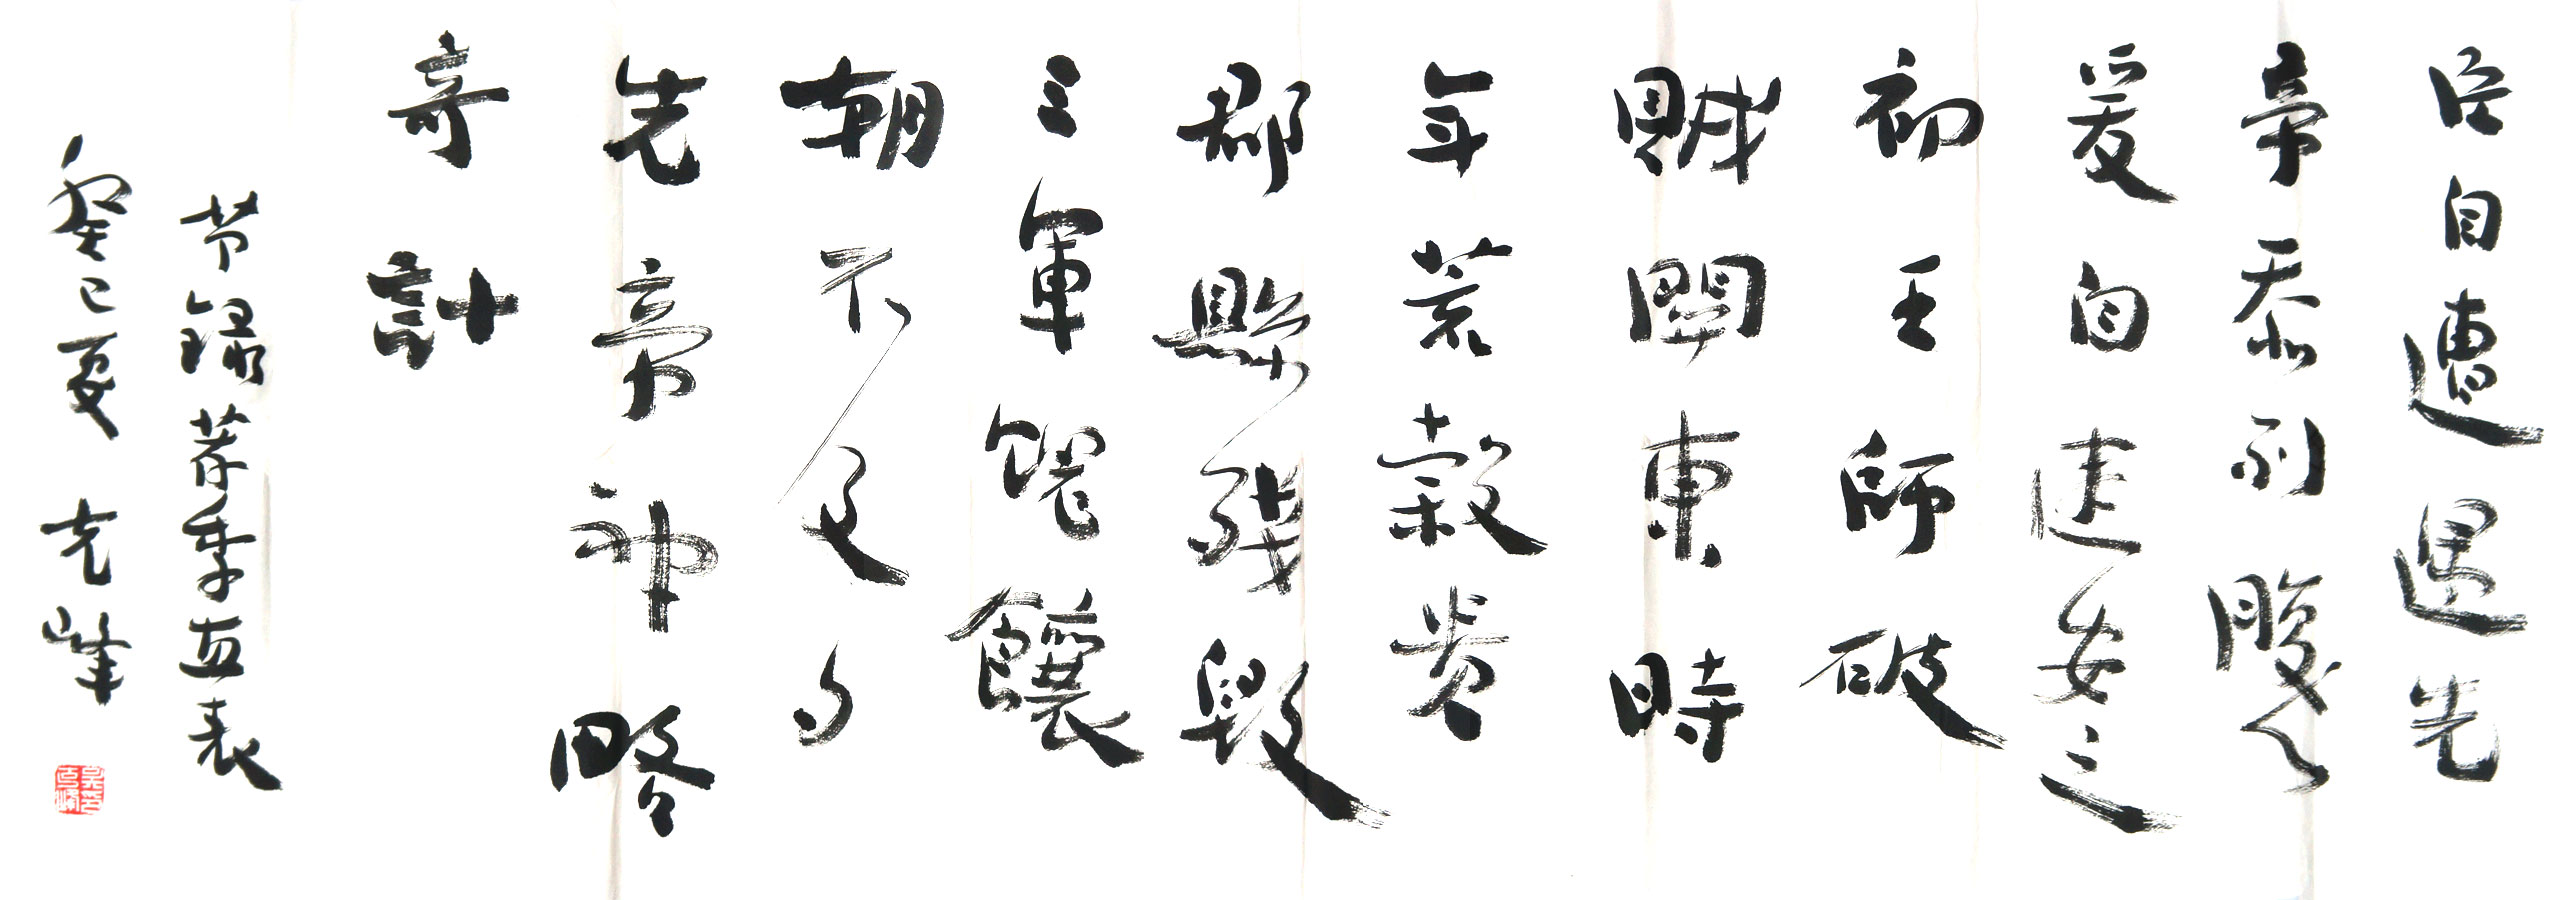 臣自遭遇先
帝忝列腹心
爰自建安之
初王師破
賊關東時
年荒穀貴
郡縣殘毀
三軍餽饟
朝不及夕
先帝神略
奇計
节録荐季直表
癸巳夏 峰